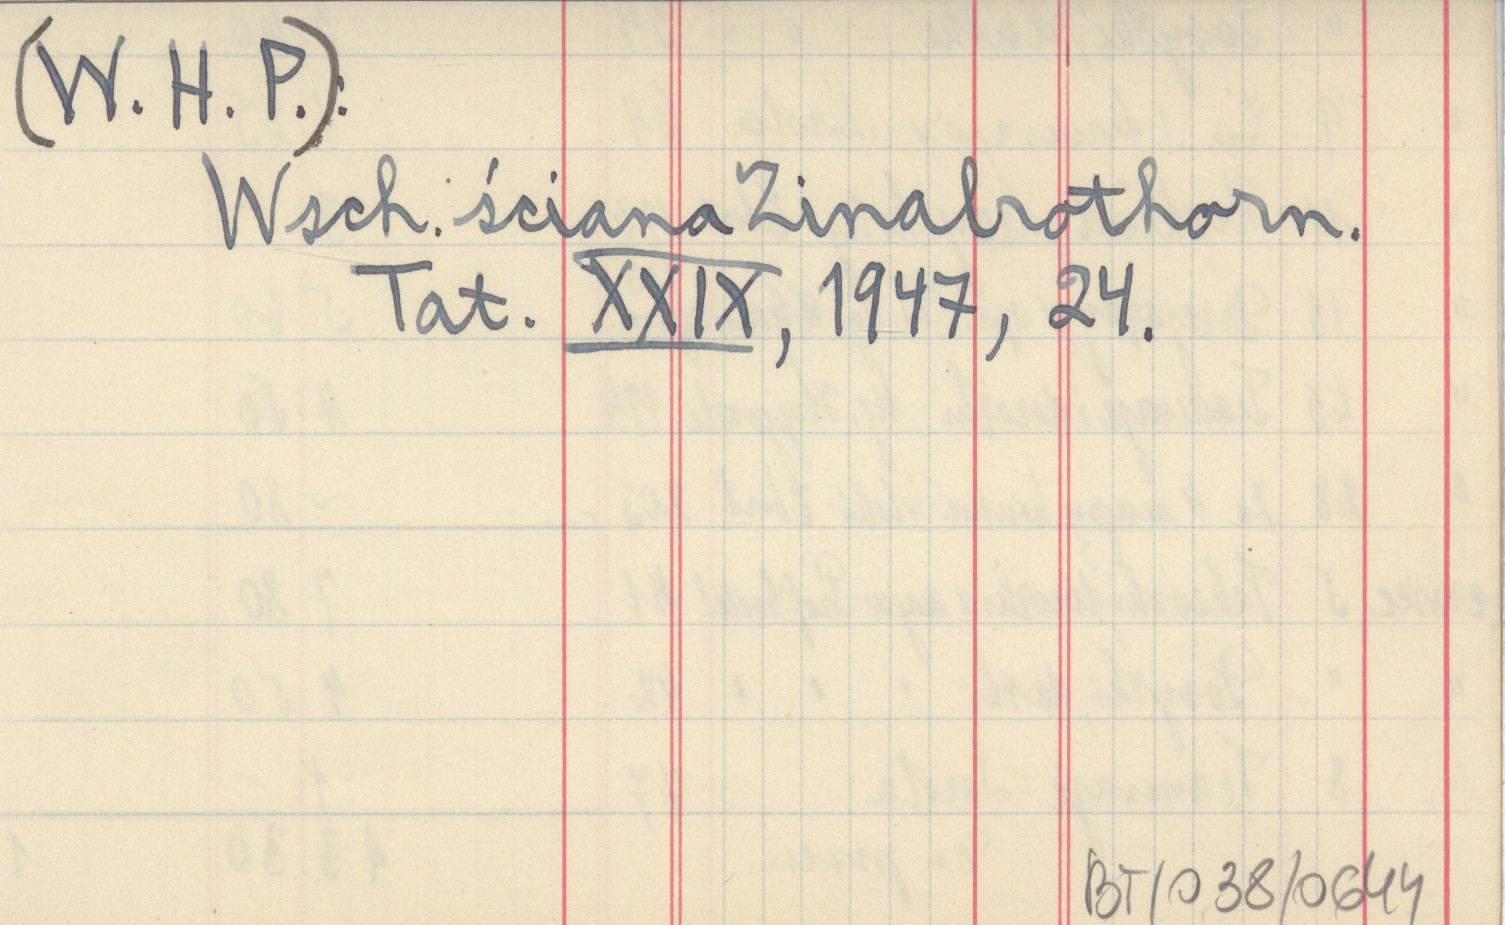 (W. H. P.):
Wsch. ściana Zinalrothorn.
Tat. XXIX, 1947, 24.
BT/038/0644